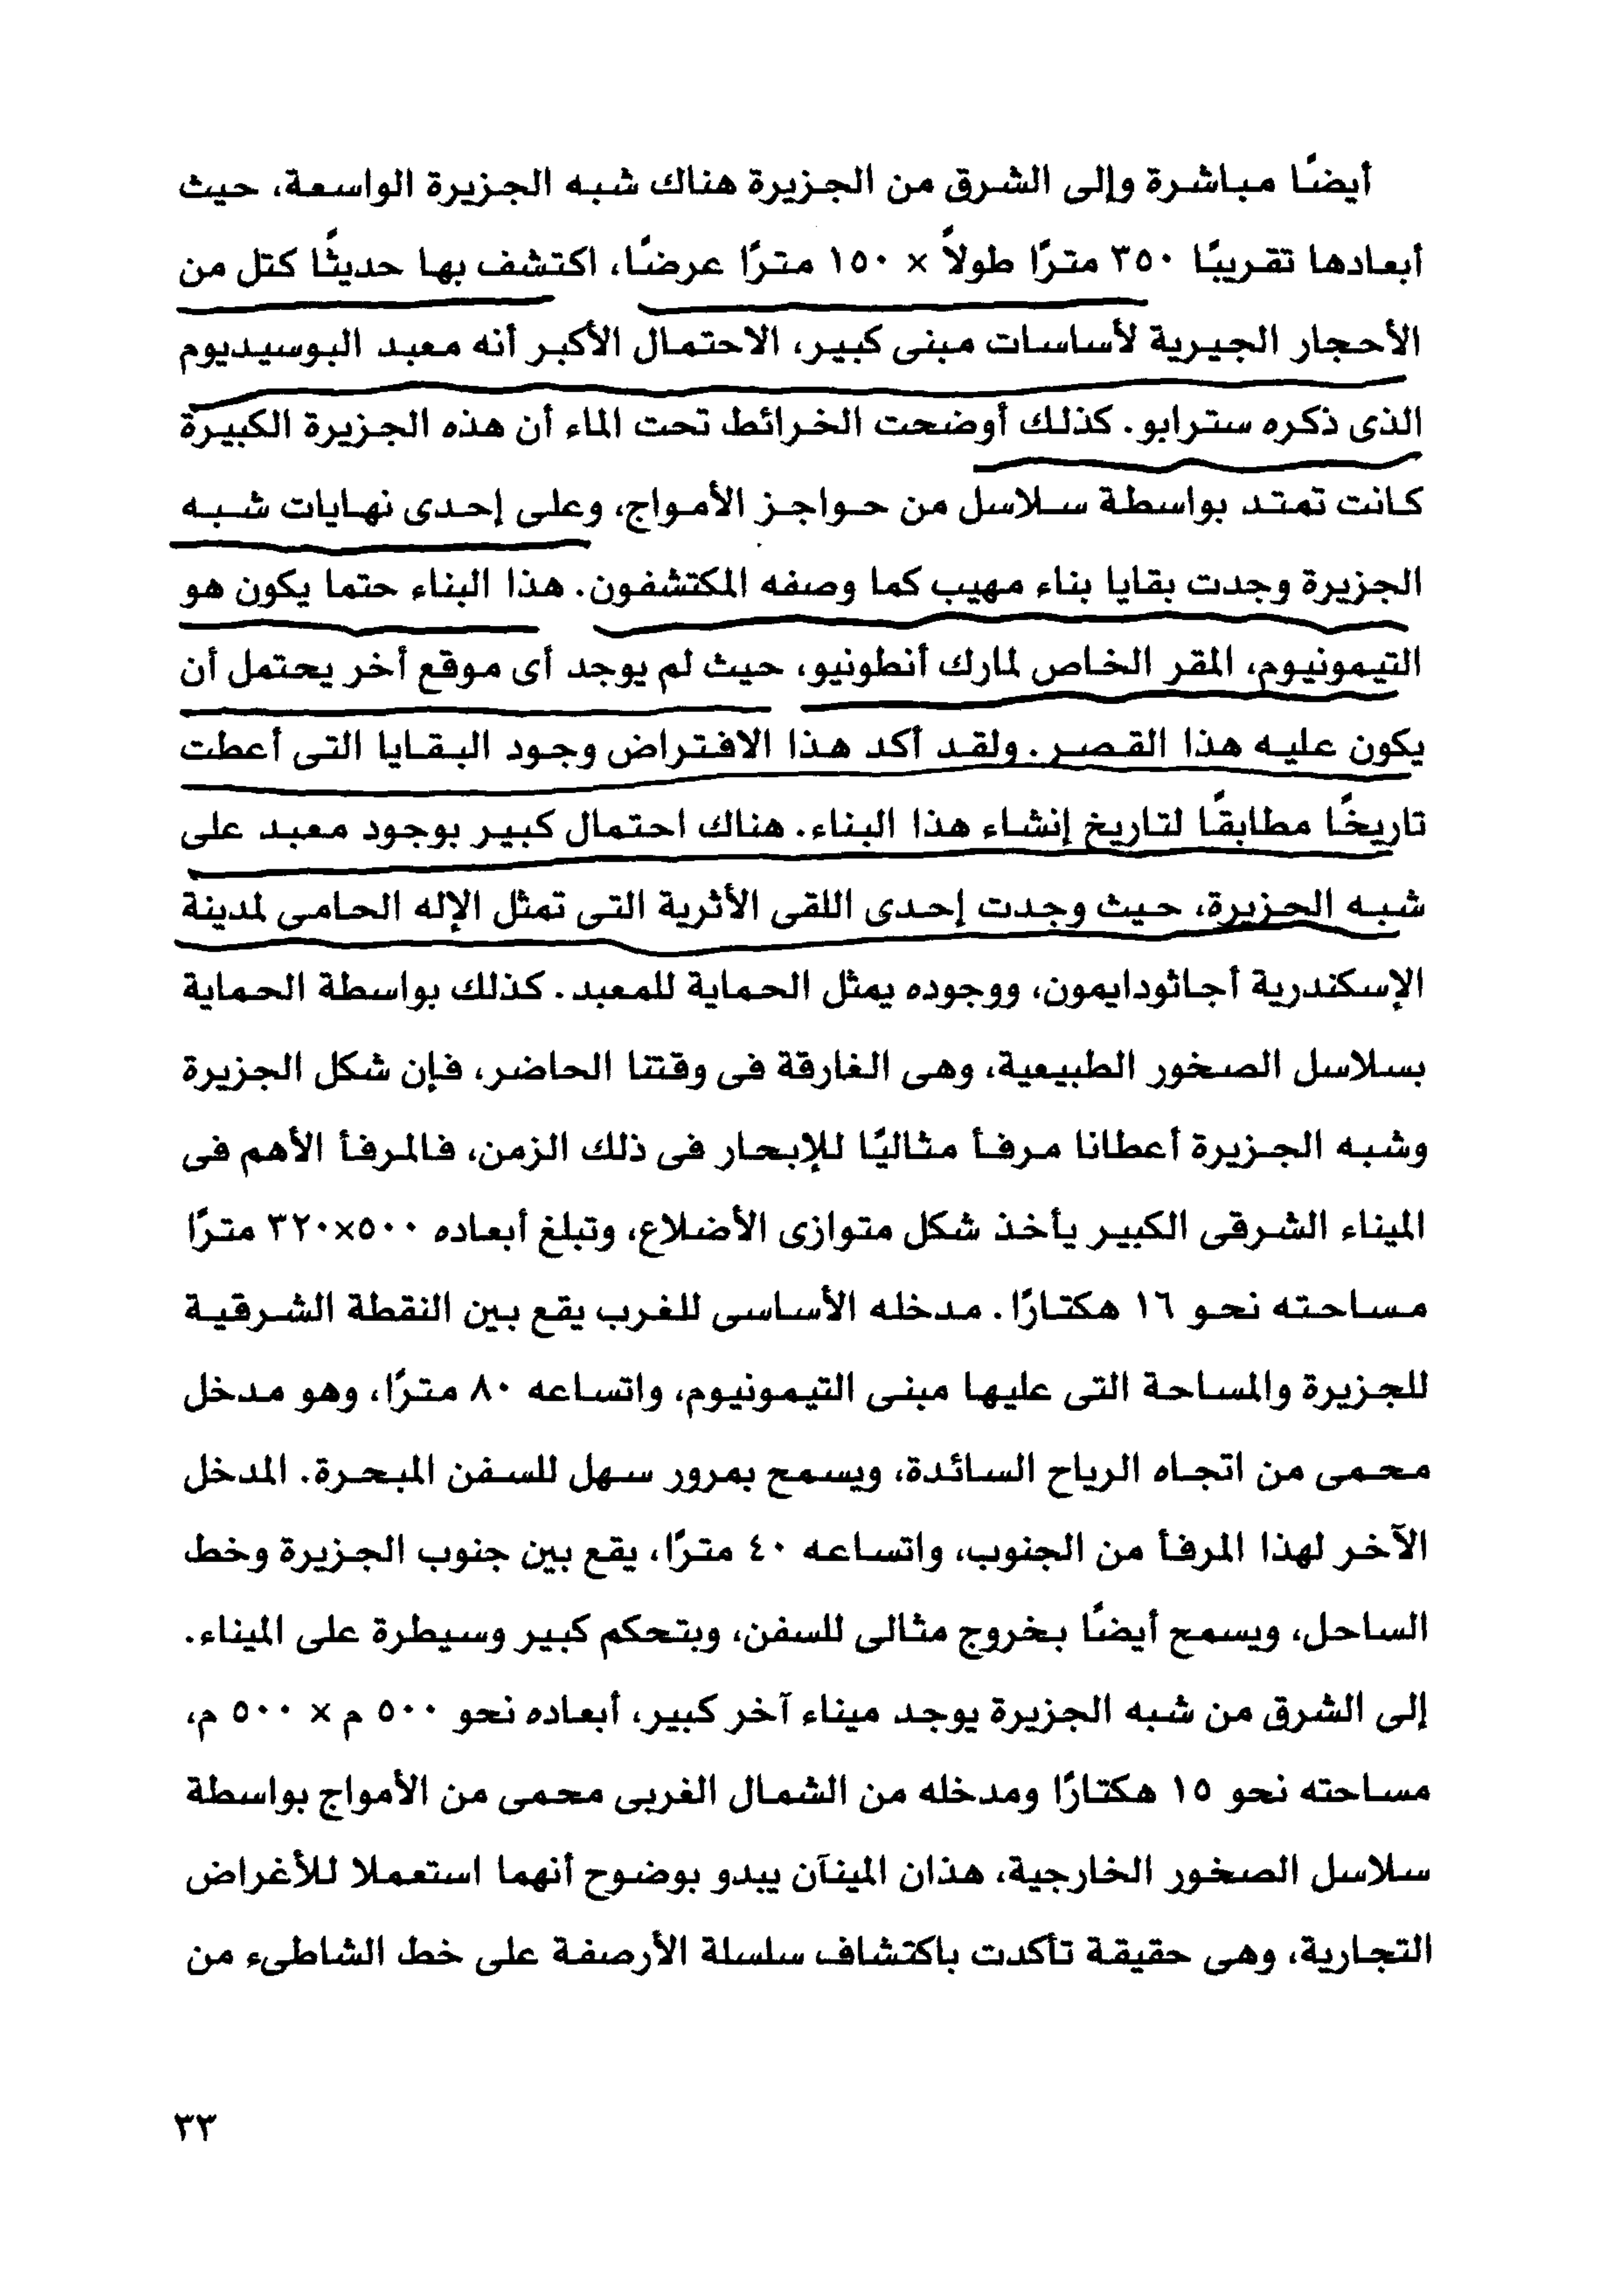 أيضًا مباشرة وإلى الشرق من الجزيرة هناك شبه الجزيرة الواسعة، حيث
أبعادها تقريبًا ٣٥٠ مترًا طولاً × ١٥٠ مترًا عرضًا، اكتشف بها حديثًا كتل من
الأحجار الجيرية لأساسات مبنى كبير، الاحتمال الأكبر أنه معبد البوسيديوم
الذى ذكره سترابو. كذلك أوضحت الخرائط تحت الماء أن هذه الجزيرة الكبيرة
كانت تمتد بواسطة سلاسل من حواجز الأمواج، وعلى إحدى نهايات شبه
الجزيرة وجدت بقايا بناء مهيب كما وصفه المكتشفون. هذا البناء حتما يكون هو
التيمونيوم، المقر الخاص لمارك أنطونيو، حيث لم يوجد أى موقع أخر يحتمل أن
يكون عليه هذا القصر. ولقد أكد هذا الافتراض وجود البقايا التى أعطت
تاريخًا مطابقًا لتاريخ إنشاء هذا البناء. هناك احتمال كبير بوجود معبد على
شبه الجزيرة، حيث وجدت إحدى اللقى الأثرية التى تمثل الإله الحامى لمدينة
الإسكندرية أجاثودايمون، ووجوده يمثل الحماية للمعبد. كذلك بواسطة الحماية
بسلاسل الصخور الطبيعية، وهى الغارقة فى وقتنا الحاضر، فإن شكل الجزيرة
وشبه الجزيرة أعطانا مرفأ مثاليًا للإبحار فى ذلك الزمن، فالمرفأ الأهم فى
الميناء الشرقى الكبير يأخذ شكل متوازى الأضلاع، وتبلغ أبعاده ٥٠٠×٣٢٠ مترًا
مساحته نحو ١٦ هكتارًا. مدخله الأساسى للغرب يقع بين النقطة الشرقية
للجزيرة والمساحة التى عليها مبنى التيمونيوم، واتساعه ٨٠ مترًا، وهو مدخل
محمى من اتجاه الرياح السائدة، ويسمح بمرور سهل للسفن المبحرة. المدخل
الآخر لهذا المرفأ من الجنوب، واتساعه ٤٠ مترًا، يقع بين جنوب الجزيرة وخط
الساحل، ويسمح أيضًا بخروج مثالى للسفن، وبتحكم كبير وسيطرة على الميناء.
إلى الشرق من شبه الجزيرة يوجد ميناء آخر كبير، أبعاده نحو ٥٠٠ م × ٥٠٠ م،
مساحته نحو ١٥ هكتارًا ومدخله من الشمال الغربى محمى من الأمواج بواسطة
سلاسل الصخور الخارجية، هذان المينآن يبدو بوضوح أنهما استعملا للأغراض
التجارية، وهى حقيقة تأكدت باكتشاف سلسلة الأرصفة على خط الشاطىء من
٣٣